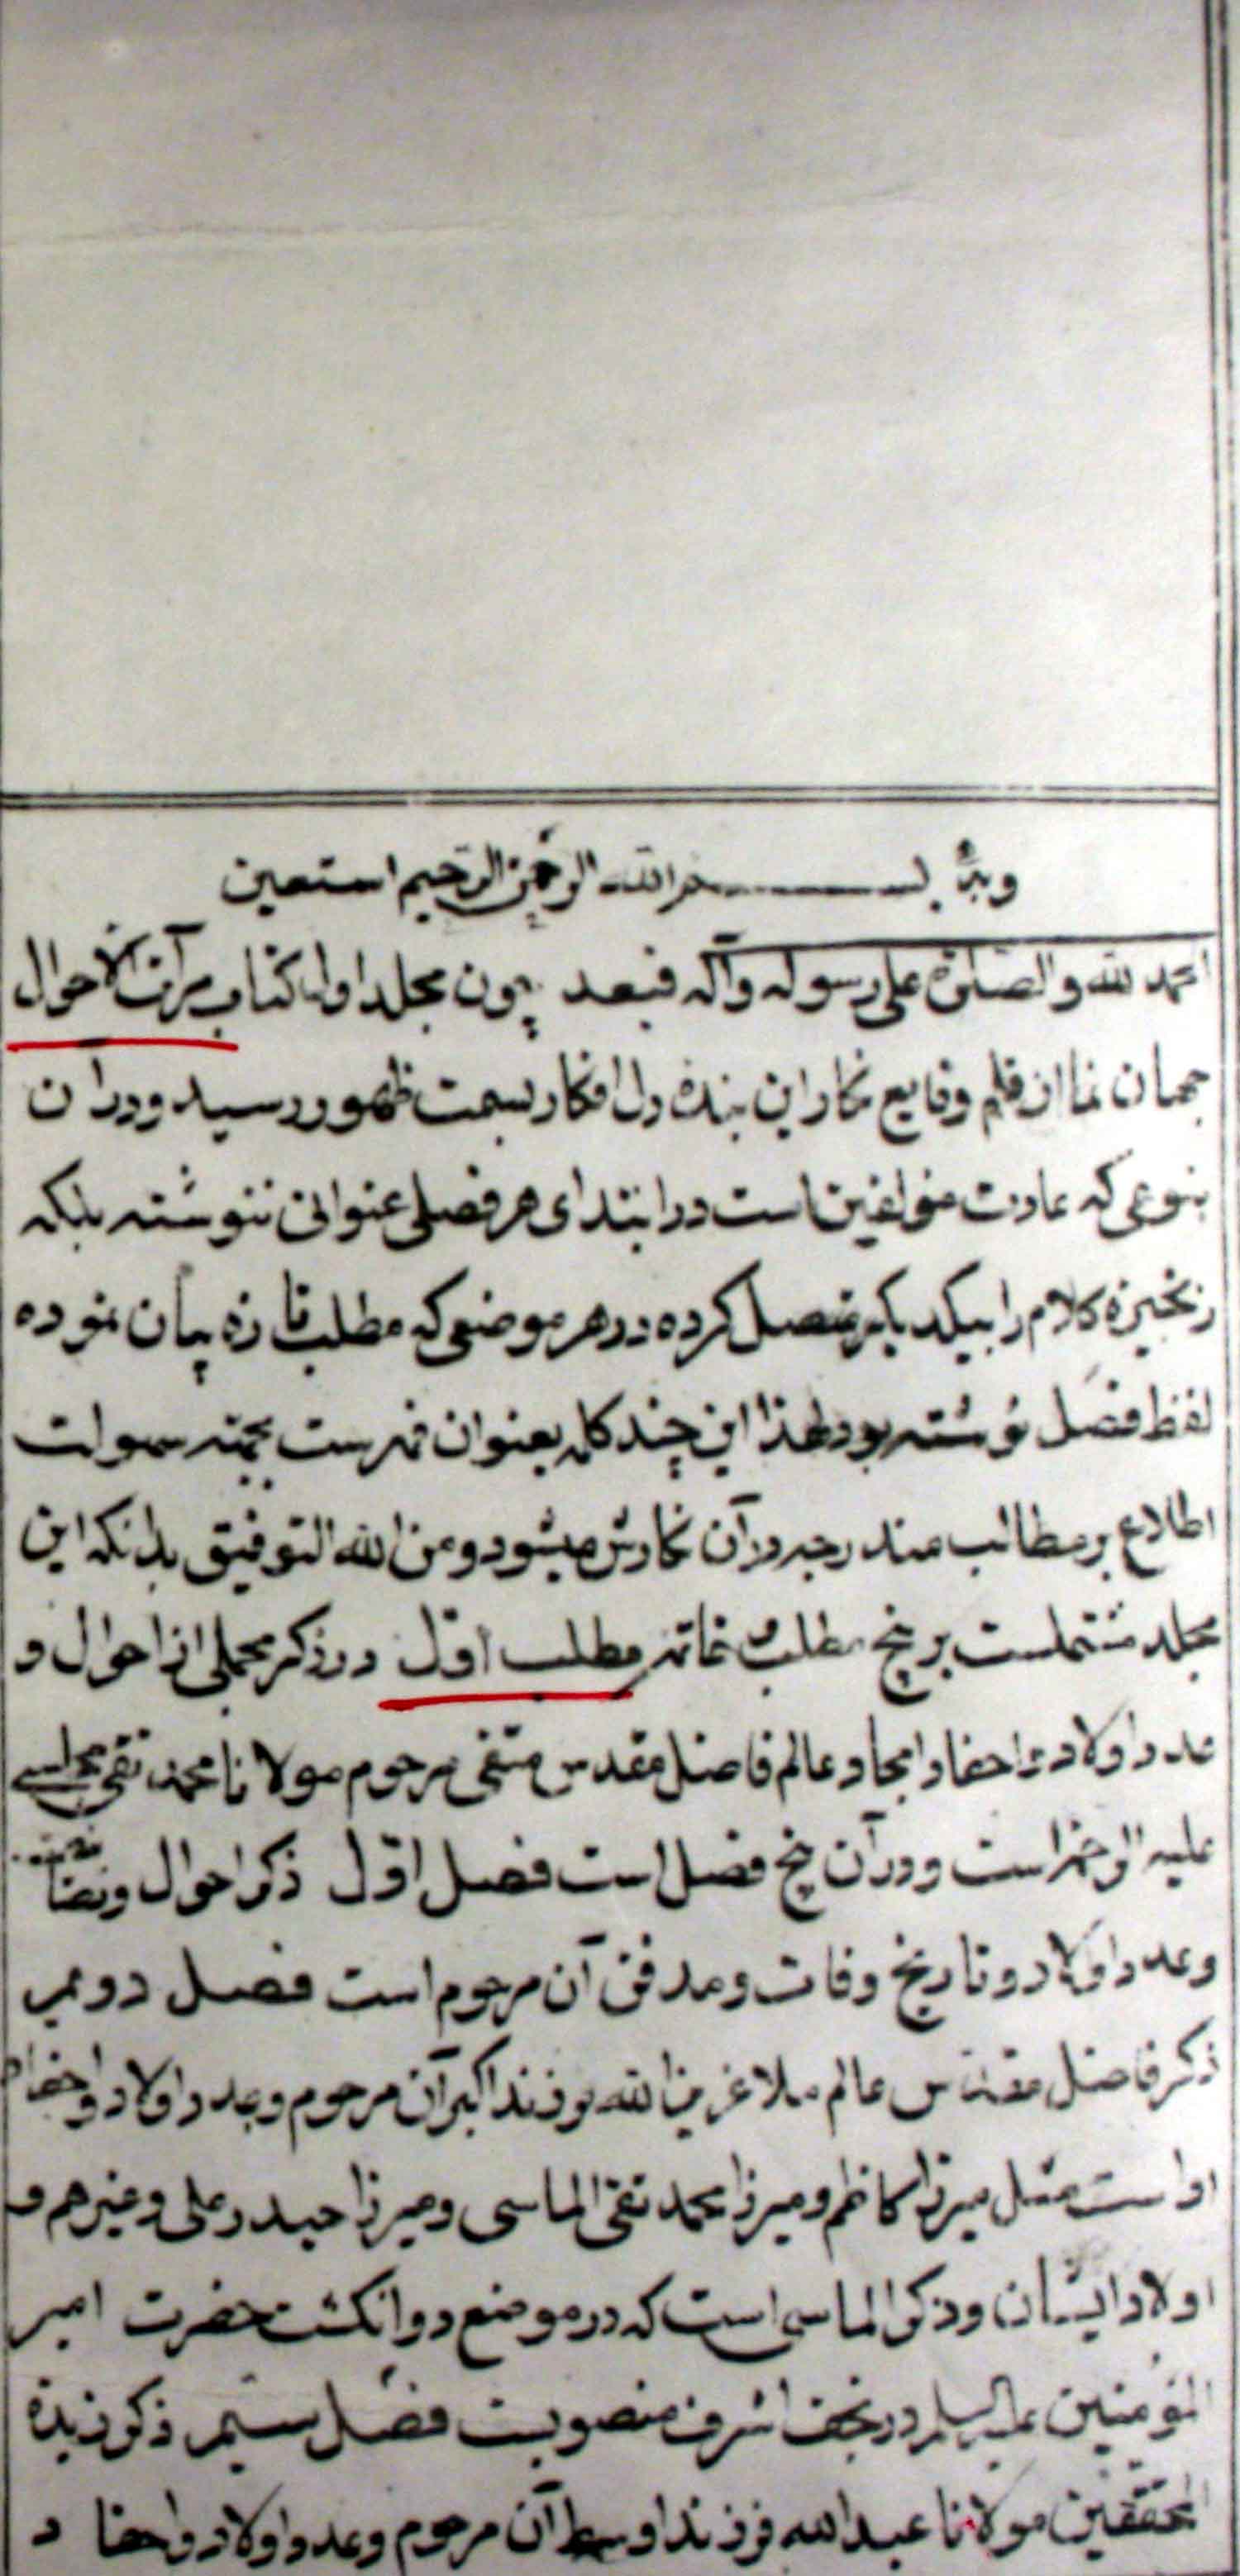 وبه بسم الله الرحمن الرحیم استعین
الحمد لله والصلوة علی رسوله وآله فبعد چون مجلد اول کتاب مرآت الاحوال
جهان نما از قلم وقایع نکار این بنده دل افکار بسمت ظهور رسید ودر آن
بنوعی که عادت مؤلفین است در ابتدای هر فصلی عنوانی ننوشته بلکه
زنجیره کلام را بیکدیکر متصل کرده در هر موضعی که مطلب تازه بیان نموده
لفظ فصل نوشته بود لهذا این چند کلمه بعنوان فهرست بجهته سهولت
اطلاع بر مطالب مندرجه در آن نکارش میشود ومن الله التوفیق بدانکه این
مجلد مشتملست بر پنج مطلب وخاتمه مطلب اول در ذکر مجملی از احوال و
عدد اولاد واحفاد امجاد عالم فاضل مقدس متقی مرحوم مولانا محمد تقی مجلسی
علیه الرحمه است ودر آن پنج فصل است فصل اول ذکر احوال
وعدد اولاد وتاریخ وفات ومدفن آن مرحوم است فصل دویم
ذکر فاضل مقدس عالم ملا عزیز الله فرزند اکبر آن مرحوم وعدد اولاد واحفاد
او است مثل میرزا کاظم ومیرزا محمد تقی الماسی ومیرزا حیدر علی وغیرهم و
اولاد ایشان وذکر الماسی است که در موضع دو انکشت حضرت امیر
المؤمنین علیه السلام در نجف اشرف منصوبست فصل سیم ذکر زبدة
المحققین مولانا عبد الله فرزند اوسط آن مرحوم وعدد اولاد واحفاد